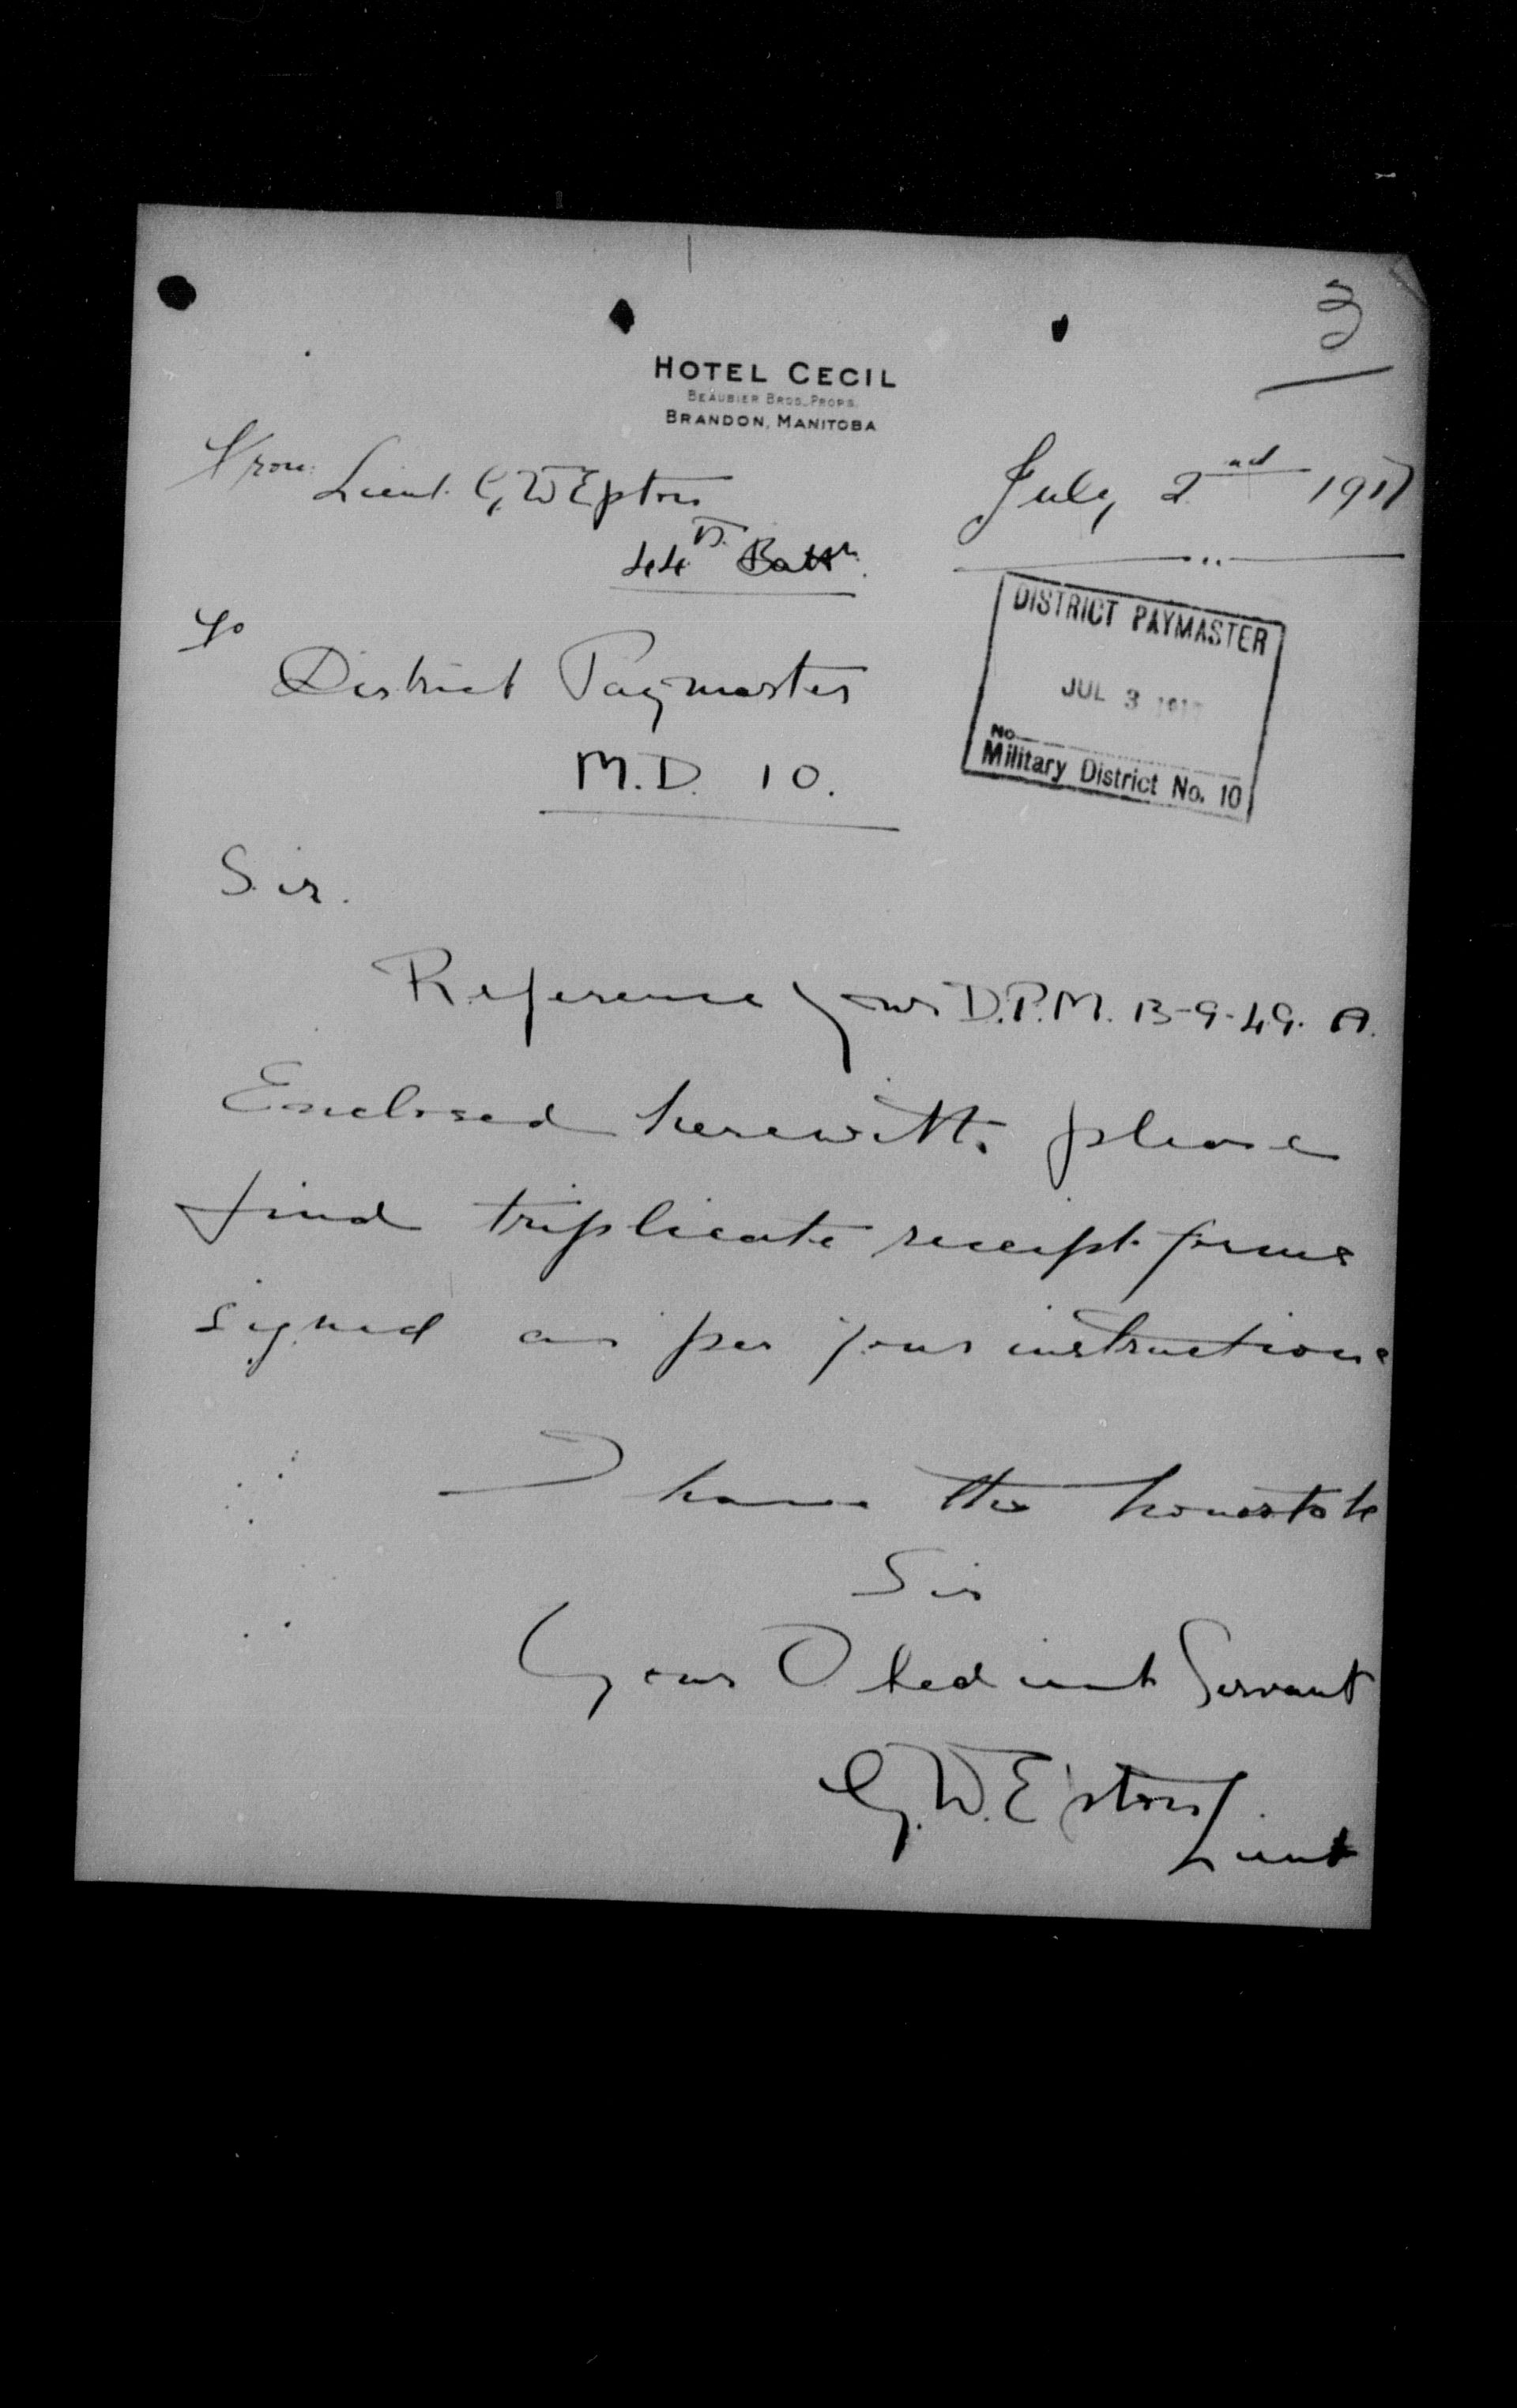 3
HOTEL CECIL
BEAUBIER BROS. PROPS.
BRANDON, MANITOBA
From Lieut. G W Epton
July 2nd 1917
44th Battn.
DISTRICT PAYMASTER
JUL 3 1917
No
Military District No. 10
To
District Paymaster
M.D. 10.
Sir.
Reference your D.P.M. 13-9-49. A.
Enclosed herewith please
find triplicate receipt forms
signed as per your instructions
I have the honor to be
Sir
Your Obedient Servant
G. W. Epton
Lieut